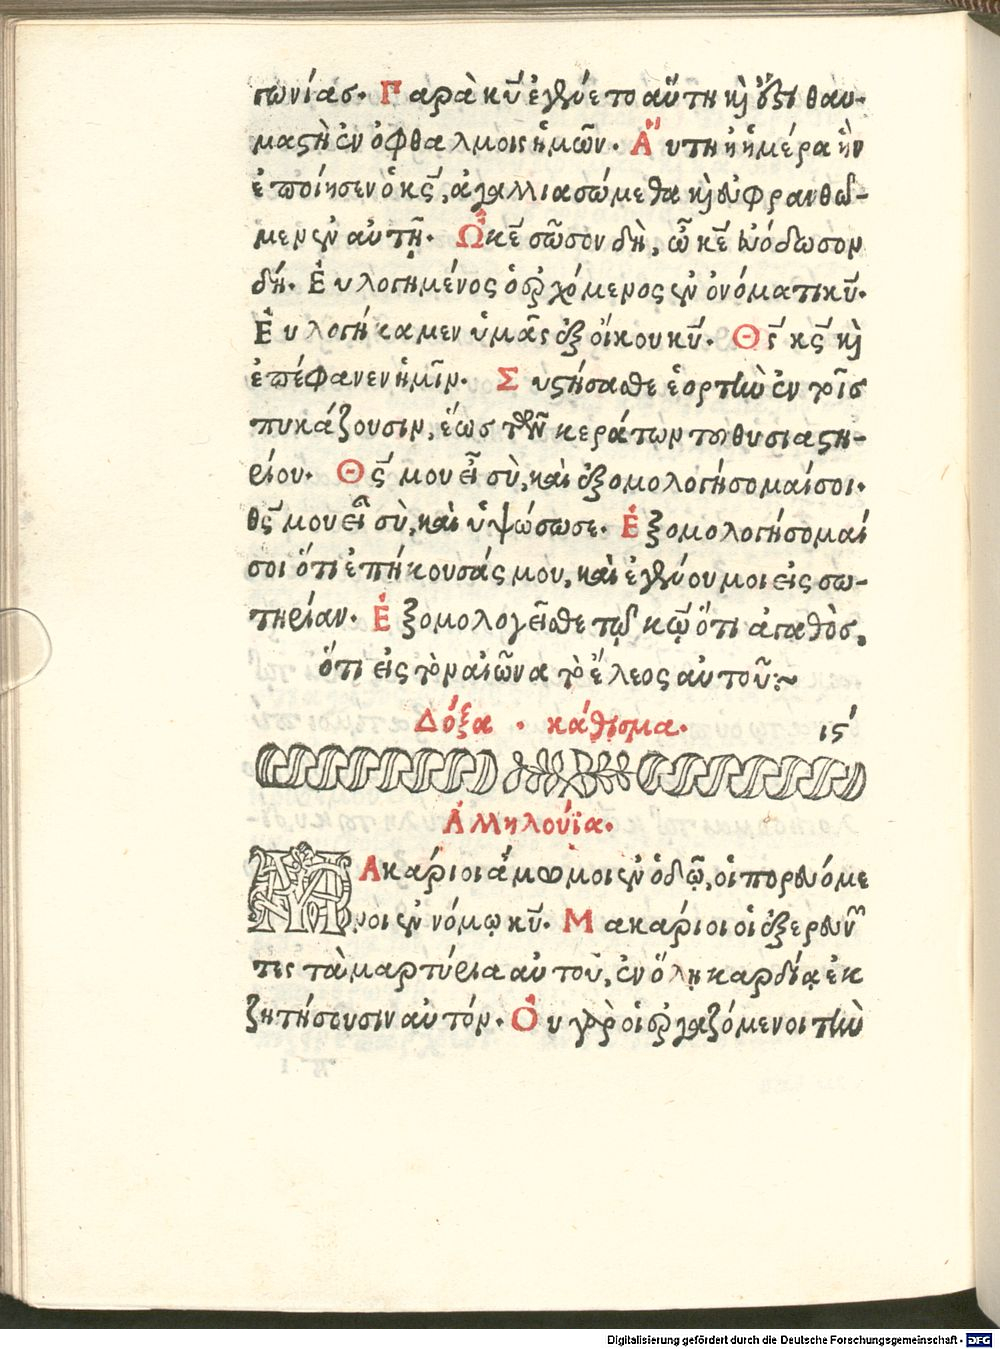 γωνίας. Παρὰ κυ̅ ἐγένετο αὕτη κ̀ ἔστι θαυ-
μαστὴ ἐν ὀφθαλμοις ἡμῶν. Αὕτη ἡ ἡμέρα ἣν
ἐποίησεν ὁ κς̅, ἀγαλλιασώμεθα κ̀ εὐφρανθῶ-
μεν ἐν αὐτῇ. Ὦ κε̅ σῶσον δὴ, ὦ κε̅ εὐόδωσον
δή. Ἐυλογημένος ὁ ἐρχόμενος ἐν ὀνόματι κυ̅.
Ἐυλογήκαμεν ὑμᾶς ἐξ οἴκου κυ̅. Θς̅ κς̅ κ̀
ἐπέφανεν ἡμῖν. Συστήσασθε ἑορτὴν ἐν τοῖς
πυκάζουσιν, ἕως τῶν κεράτων του θυσιαστη-
ρίου. Θς̅ μου εἶ σὺ, καὶ ἐξομολογήσομαί σοι.
θς̅ μου εἶ σὺ, καὶ ὑψώσω σε. Ἐξομολογήσομαί
σοι ὅτι ἐπήκουσάς μου, καὶ ἐγένου μοι εἰς σω-
τηρίαν. Ἐξομολογεῖσθε τῷ κῷ ὅτι ἀγαθὸς,
ὅτι εἰς τὸν αἰῶνα τὸ ἔλεος αὐτοῦ:~
Δόξα · κάθισμα. ιϛ´
Ἀλληλούϊα.
ΜΑκάριοι ἄμωμοι ἐν ὁδῷ, οἱ πορευόμε
νοι ἐν νόμῳ κυ̅. Μακάριοι οἱ ἐξερευνῶν
τες τὰ μαρτύρια αὐτοῦ, ἐν ὅλῃ καρδίᾳ ἐκ
ζητήσουσιν αὐτόν. Ὀυ γὰρ οἱ ἐργαζόμενοι τὴν
Digitalisierung gefördert durch die Deutsche Forschungsgemeinschaft - DFG